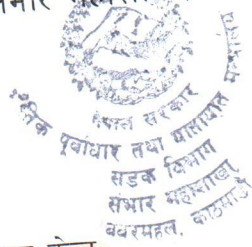 नेपाल सरकार
पूर्वाधार तथा यातायात
सडक विभाग
संभार महाशाखा
बबरमहल, काठमाडौं